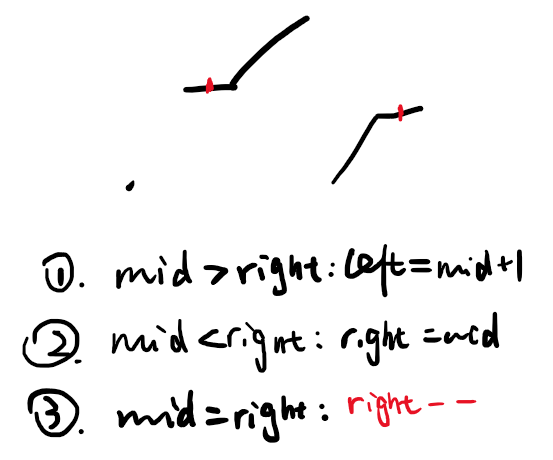 ①. mid > right: left = mid+1
②. mid < right: right = mid
③. mid = right: right - -